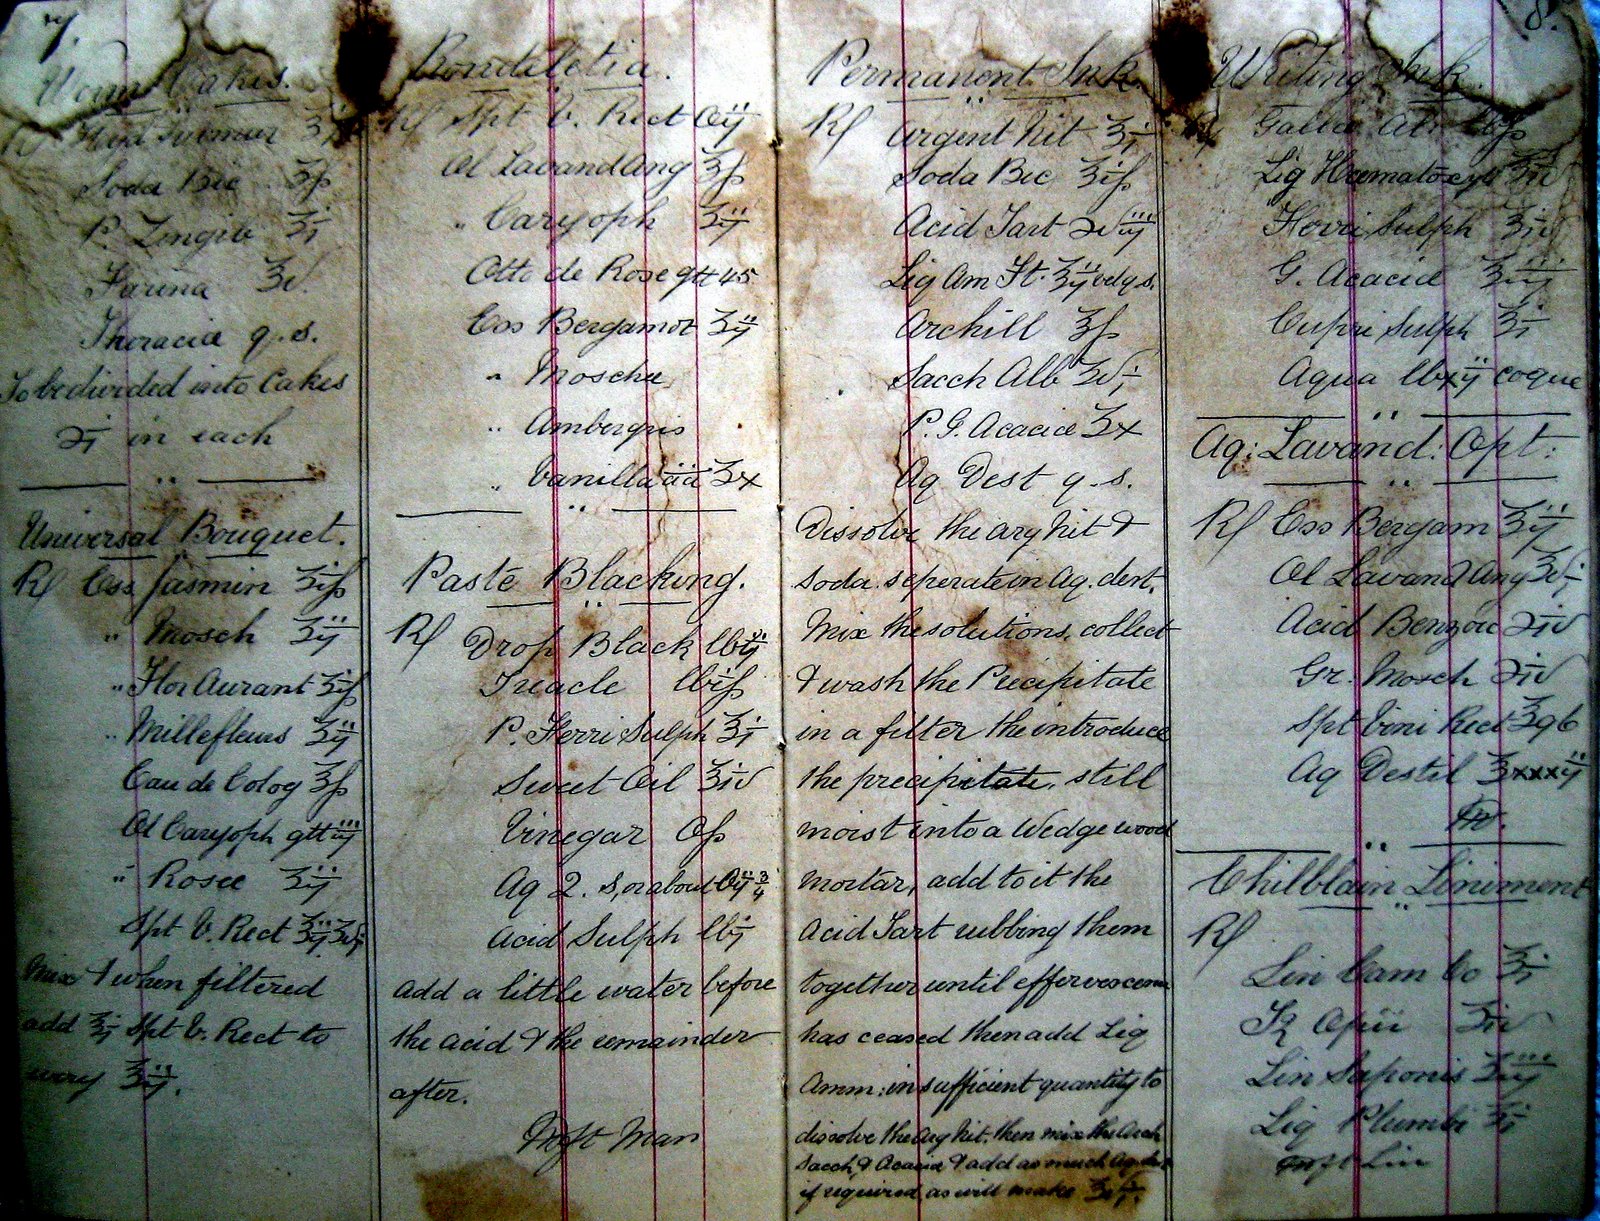 7.
Worm Cakes.
Rx Hyd Submur ʒi
Soda Bic ʒſs
P. Zingib ʒi
Farina ʒv
Theracia q. s.
To be divided into Cakes
ʒi in each
Universal Bouquet.
Rx Ess Jasmin ʒiſs
" Mosch ʒij
" Flor Aurant ʒiſs
" Millefleurs ʒij
Eau de Colog ʒſs
Ol Caryoph gtt iij
" Rosæ ʒij
Spt V. Rect
Mix & when filtered
add ʒi Spt V. Rect to
every ʒij.
Rondeletia.
Rx Spt V. Rect Oij
Ol Lavand Ang ʒſs
" Caryoph ʒij
Otto de Rose gtt 45
Ess Bergamot ʒij
" Moschu
" Ambergris
" Vanilla aa ʒx
Paste Blacking.
Rx Drop Black lbij
Treacle lbiſs
P. Ferri Sulph ʒi
Sweet Oil ʒiv
Vinegar Oſs
Aq 2. S, or about Oij 3/4
Acid Sulph lbi
add a little water before
the acid & the remainder
after.
Mft Man
Permanent Ink.
Rx Argent Nit ʒi
Soda Bic ʒiſs
Acid Tart
Liq Am Ft. ʒij vel q s.
Archill ʒſs
Sacch Alb ʒvi
P. G. Acaciæ ʒx
Aq Dest q. s.
Dissolve the arg nit &
soda seperate in Aq. dest.
Mix the solutions, collect
& wash the Precipitate
in a filter the introduce
the precipitate, still
moist into a Wedgewood
mortar, add to it the
Acid Tart rubbing them
together until effervescence
has ceased then add Liq
Amm: in sufficient quantity to
dissolve the Arg Nit. then mix the Arch
Sacch & Acacia & add as much Aq dest
if required as will make
8.
Writing Ink
Gallæ
Lig Hæmatoxyl ʒiv
Ferri Sulph ʒiv
G. Acacia ʒiij
Cupri Sulph ʒi
Aqua lbxij coque
Aq: Lavand: Opt:
Rx Ess Bergam ʒij
Ol Lavand Ang ʒvi
Acid Benzoic ʒiv
Gr. Mosch ʒiv
Spt Vini Rect ʒ96
Aq Destil ʒxxxij
Chilblain Liniment
Rx
Lin Cam Co ʒi
Tr Opii ʒiv
Lin Saponis ʒiij
Liq Plumbi ʒi
mft Lin